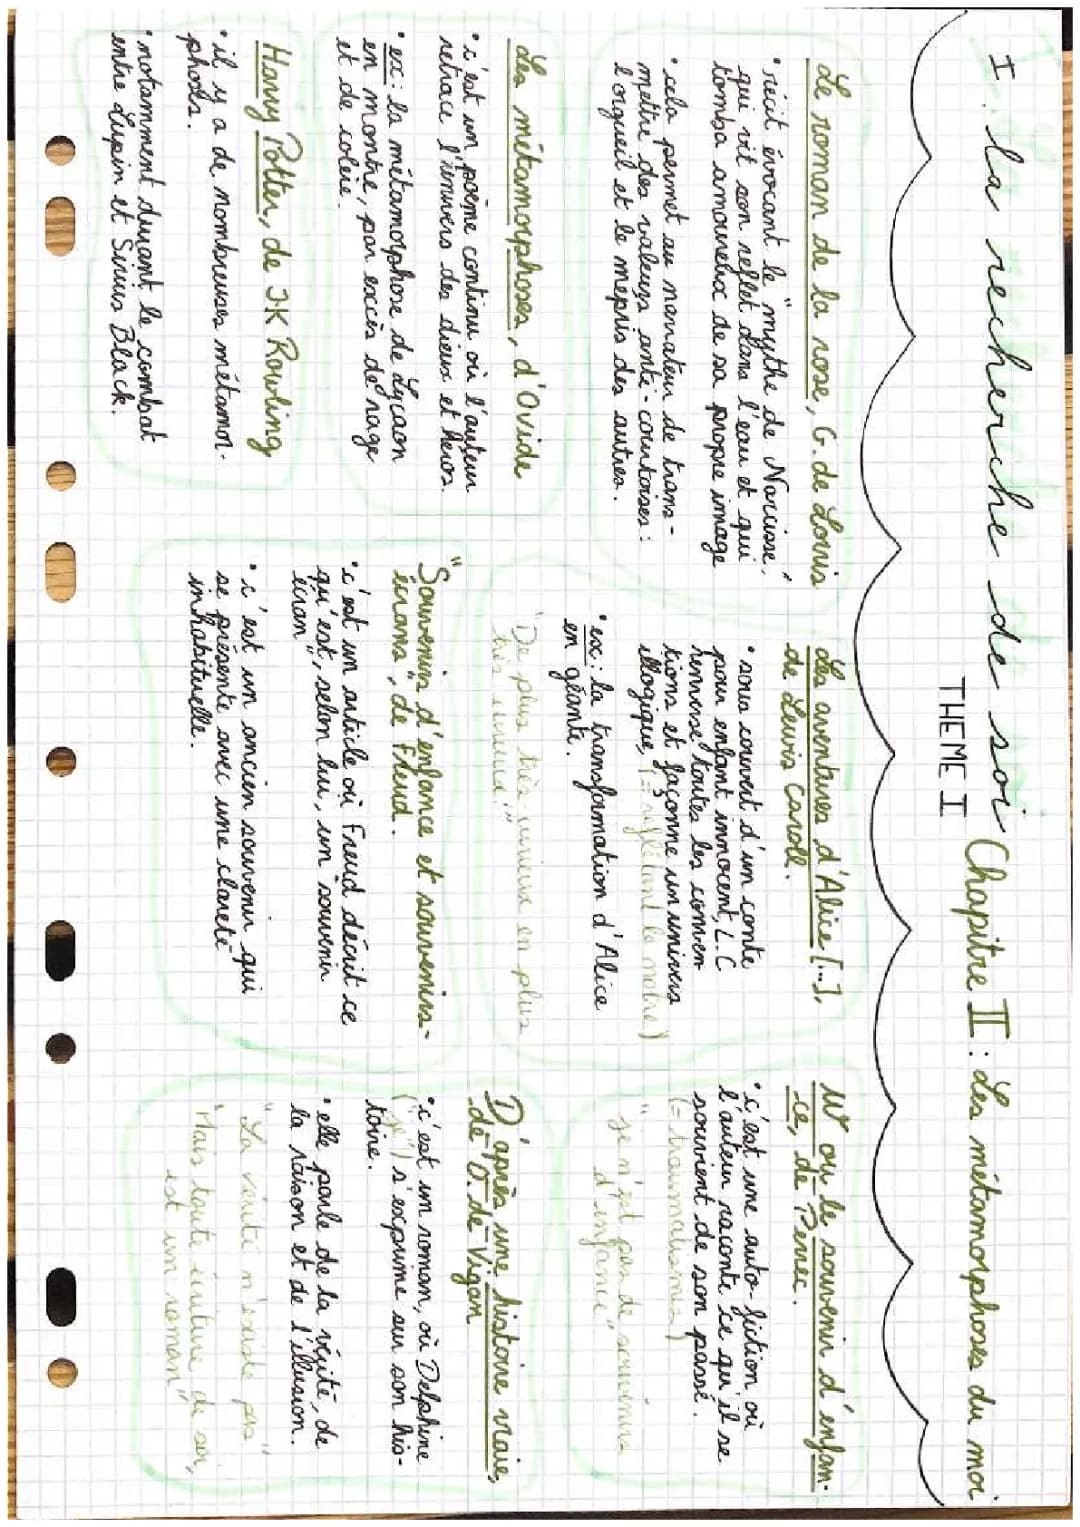 I. la recherche de soi
THEME I
Chapitre II : Les métamorphoses du moi
Le roman de la rose, G. de Lorris
• récit évocant le "mythe de Narcisse,"
qui vit son reflet dans l'eau et qui
tomba amoureux de sa propre image
• cela permet au narrateur de trans-
mettre des valeurs anti-courtoises :
l'orgueil et le mepris des autres.
Les métamorphoses, d'Ovide
• c'est un poème continu où l'auteur
retrace l'univers des dieux et héros.
• ex : la métamorphose de Lycaon
en montre, par excès de rage
et de colère.
Harry Potter, de J-K Rowling
• il y a de nombreuses métamor-
phoses.
• notamment durant le combat
entre Lupin et Sirius Black.
Les aventures d'Alice [...],
de Lewis Caroll.
• sous couvert d'un conte
pour enfant innocent, L.C
renverse toutes les conven
tions et façonne un univers
illogique, (= reflétant le notre)
• ex : la transformation d'Alice
en géante.
"De plus très curieux en plus
très curieux"
"Souvenirs d'enfance et souvenirs-
écrans", de Freud.
• c'est un article où Freud décrit ce
qu'est, selon lui, un "souvenir
écran"
• c'est un ancien souvenir qui
se présente avec une clareté
inhabituelle.
W ou le souvenir d'enfan-
ce, de Perec.
• c'est une auto-fiction où
l'auteur raconte ce qu'il se
souvient de son passé.
(= traumatismes)
"je n'ai pas de souvenirs
d'enfance"
D'après une histoire vraie,
de D. de Vigan
• c'est un roman, où Delphine
("je") s'exprime sur son his-
toire.
• elle parle de la vérité, de
la raison et de l'illusion.
"La vérité n'existe pas"
"Mais toute écriture de soi,
est un roman"